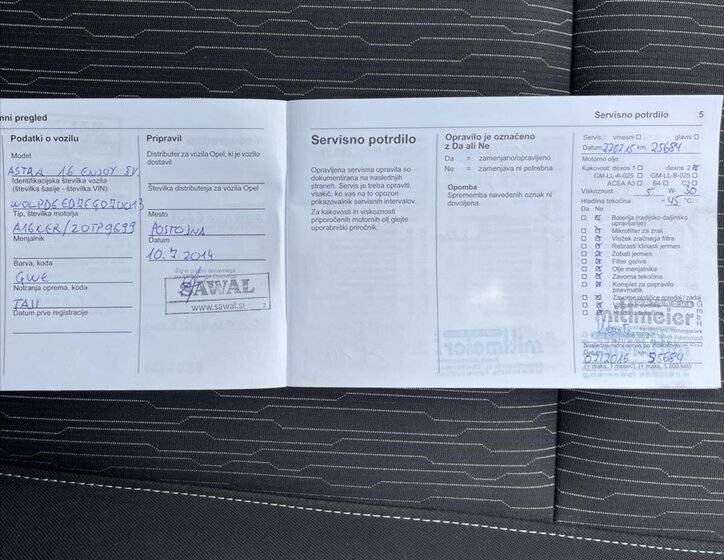 mni pregled
Podatki o vozilu
Model
ASTRA 1.6 ENJOY 5V.
Identifikacijska številka vozila
(številka šasije - številka VIN)
Tip, številka motorja
A16XER/20TP9699
Menjalnik
Barva, koda
GWE
Notranja oprema, koda
TAJI
Datum prve registracije
Pripravil
Distributer za vozila Opel, ki je vozilo
dostavil
Številka distributerja za vozila Opel
Mesto
POSTOJNA
Datum
10. 7. 2014
SAWAL
www.sawal.si
2
Servisno potrdilo
Opravljena servisna opravila so
dokumentirana na naslednjih
straneh. Servis je treba opraviti,
vsakič, ko vas na to opozori
prikazovalnik servisnih intervalov.
Za kakovosti in viskoznosti
priporočenih motornih olj glejte
uporabniški priročnik.
Opravilo je označeno
z Da ali Ne
Da = zamenjano/opravljeno
Ne = zamenjava ni potrebna
Opomba
Sprememba navedenih oznak ni
dovoljena.
Servisno potrdilo 5
Servis : vmesni glavni
Datum 220715 km 25684
Motorno olje
Kakovost: dexos 1 dexos 2
GM-LL-A-025 GM-LL-B-025
ACEA A3 B4 C3
Viskoznost: 5 W- 30
Hladilna tekočina -45 °C
Da Ne
Baterija (radijsko daljinsko
upravljanje)
Mikrofilter za zrak
Vložek zračnega filtra
Rebrasti klinasti jermen
Zobati jermen
Filter goriva
Olje menjalnika
Zavorna tekočina
Komplet za popravilo
pnevmatik
Zavorne ploščice spredaj / zadaj
mittmeier
07/2016 55684
(+ maks. 1 mesec) (+ maks. 1.500 km)